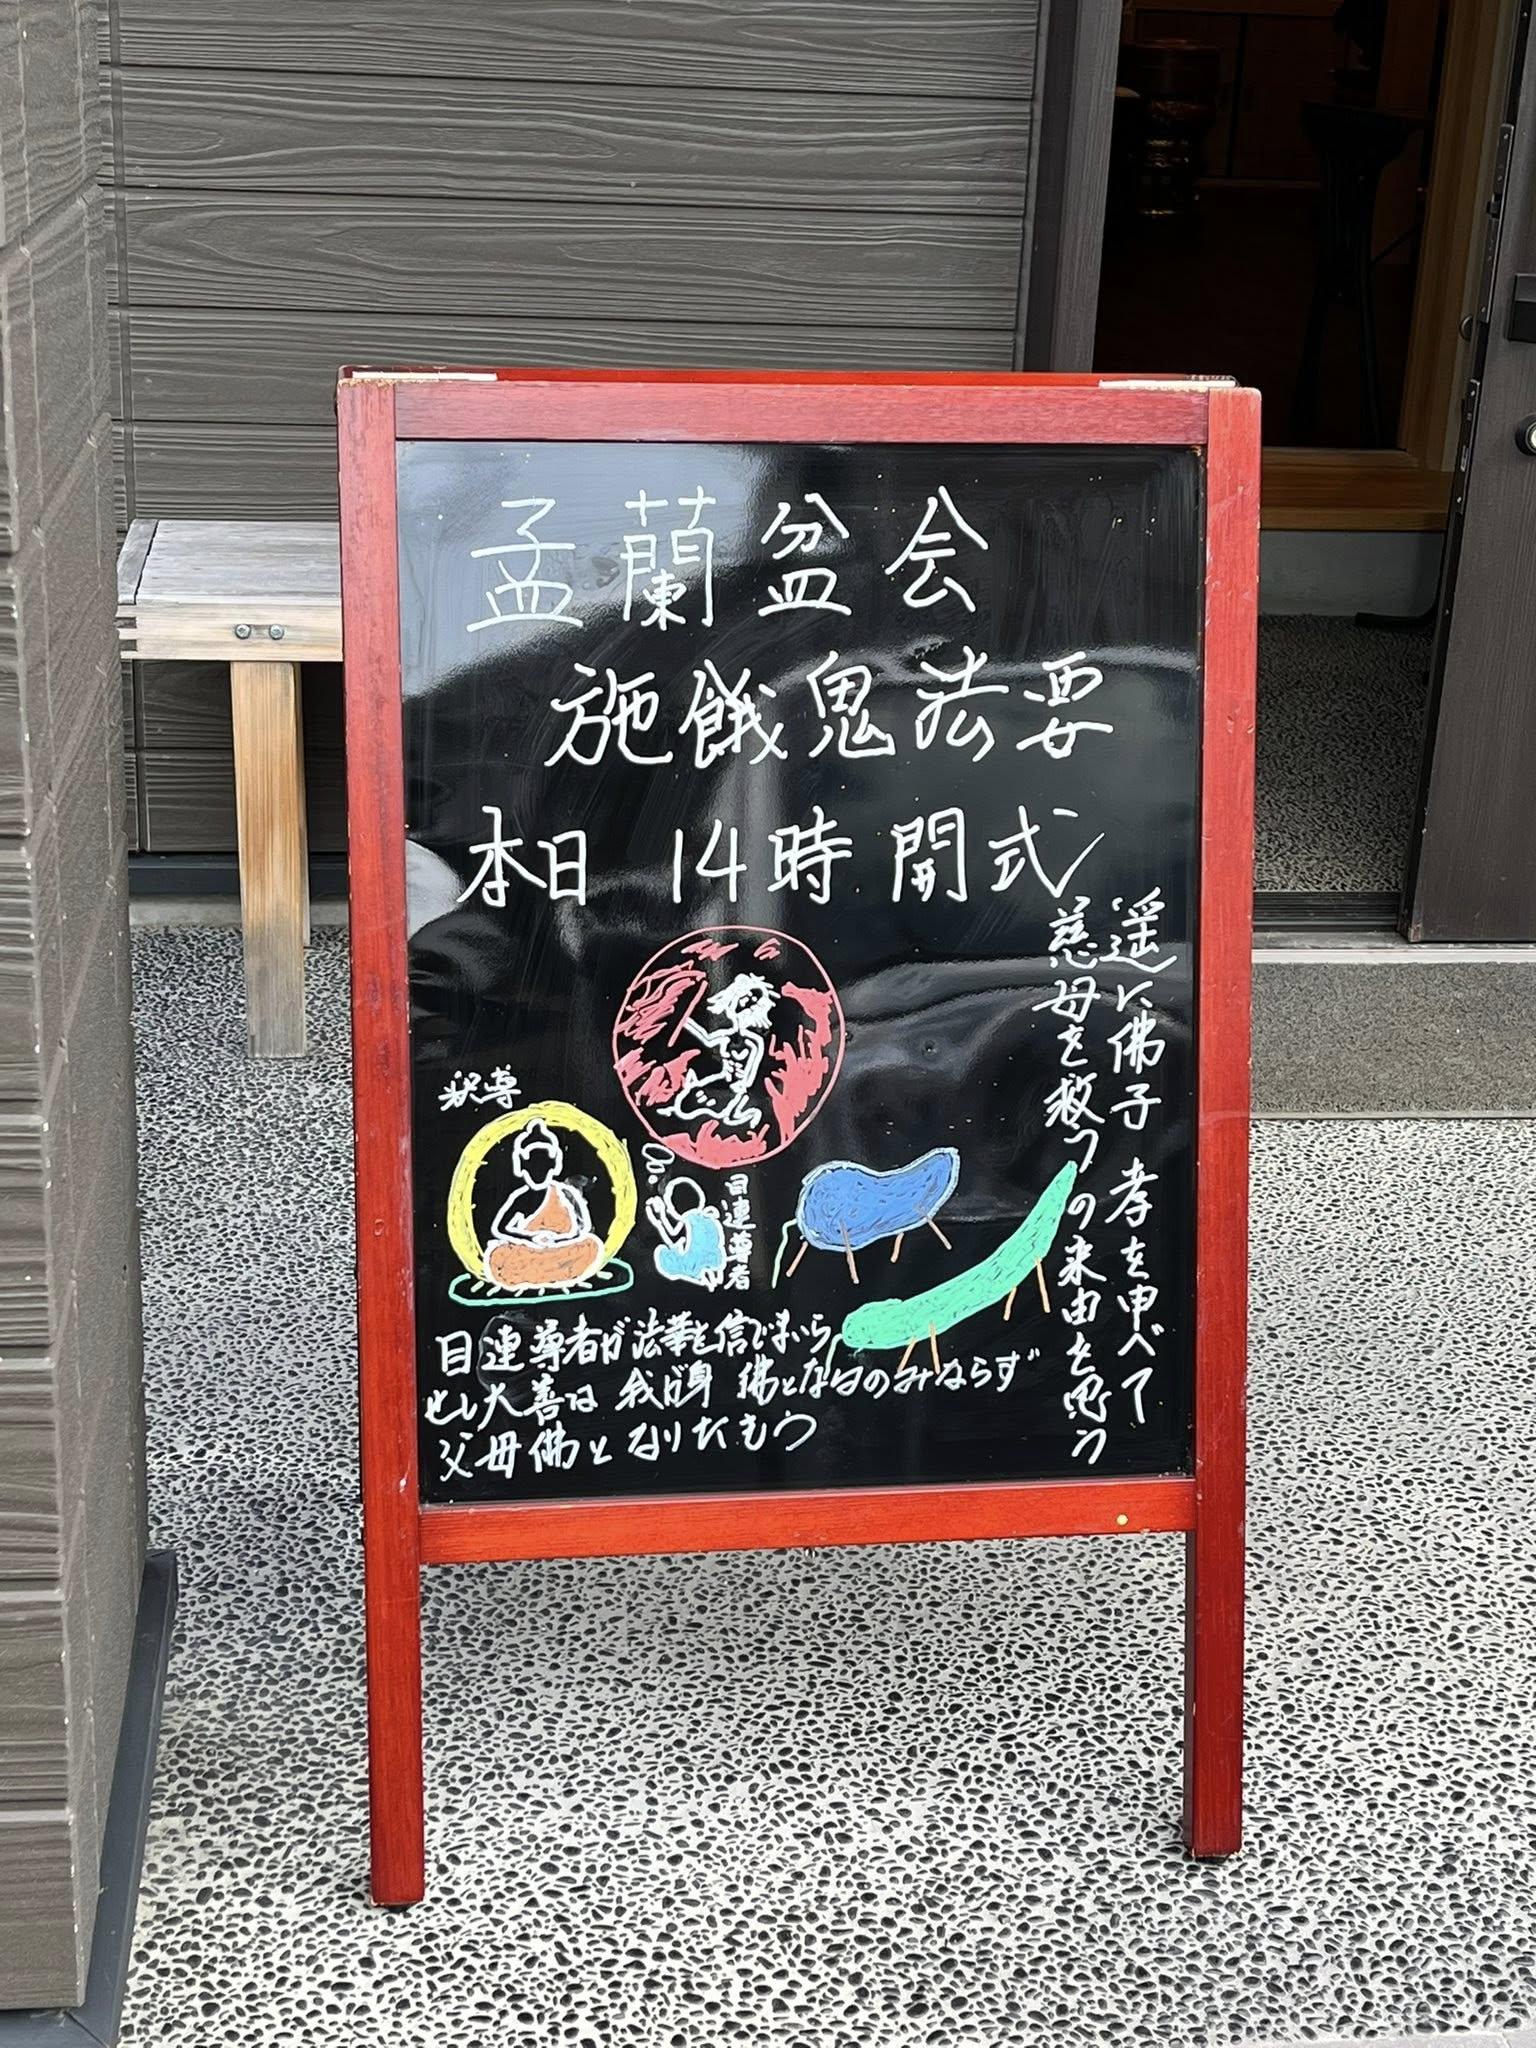 盂蘭盆会
施餓鬼法要
本日 14時 開式
遥に佛子 孝を申べて
慈母を救つの来由を思う
釈尊
目連尊者
目連尊者が法華を信じまいら
せし大善は 我が身 佛となるのみならず
父母佛となりたもう